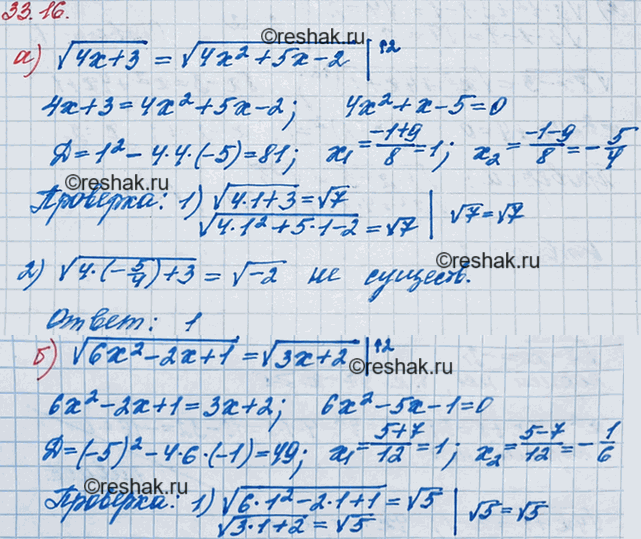 33.16.
©reshak.ru
а) √(4x+3) = √(4x²+5x-2) |↑2
4x+3=4x²+5x-2; 4x²+x-5=0
©reshak.ru
Д=1²-4·4·(-5)=81; x₁=(-1+9)/8=1; x₂=(-1-9)/8=-5/4
©reshak.ru
Проверка: 1) √(4·1+3)=√7
√(4·1²+5·1-2)=√7 | √7=√7
©reshak.ru
2) √(4·(-5/4)+3)=√-2 не существ.
Ответ: 1
©reshak.ru
б) √(6x²-2x+1)=√(3x+2) |↑2
©reshak.ru
6x²-2x+1=3x+2; 6x²-5x-1=0
Д=(-5)²-4·6·(-1)=49; x₁=(5+7)/12=1; x₂=(5-7)/12=-1/6
©reshak.ru
Проверка: 1) √(6·1²-2·1+1)=√5
√(3·1+2)=√5 | √5=√5